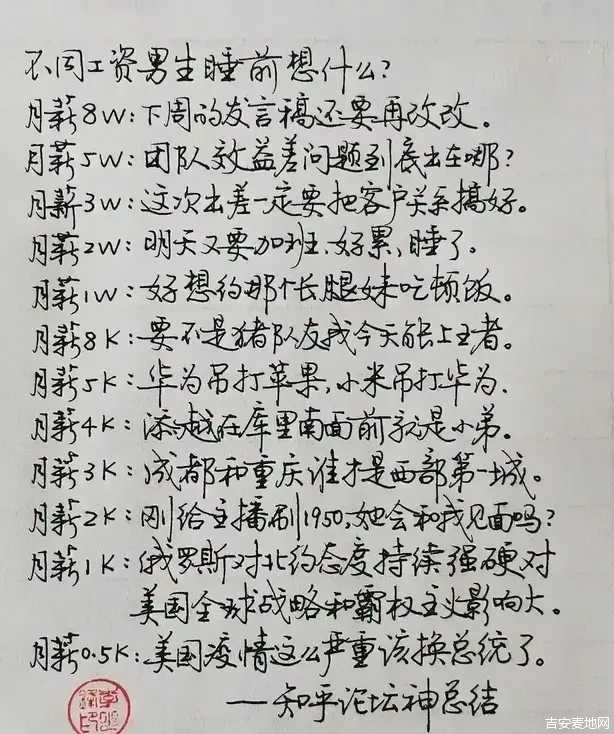 不同工资男生睡前想什么?
月薪8W:下周的发言稿还要再改改。
月薪5W:团队效益差问题到底出在哪?
月薪3W:这次出差一定要把客户关系搞好。
月薪2W:明天又要加班、好累,睡了。
月薪1W:好想约那个长腿妹吃顿饭。
月薪8K:要不是猪队友我今天能上王者。
月薪5K:华为吊打苹果,小米吊打华为.
月薪4K:添越在库里南面前就是小弟。
月薪3K:成都和重庆谁才是西部第一城。
月薪2K:刚给主播刷1950,她会和我见面吗?
月薪1K:俄罗斯对北约态度持续强硬对
美国全球战略和霸权主义影响大。
月薪0.5K:美国疫情这么严重该换总统了。
——知乎论坛神总结
吉安麦地网